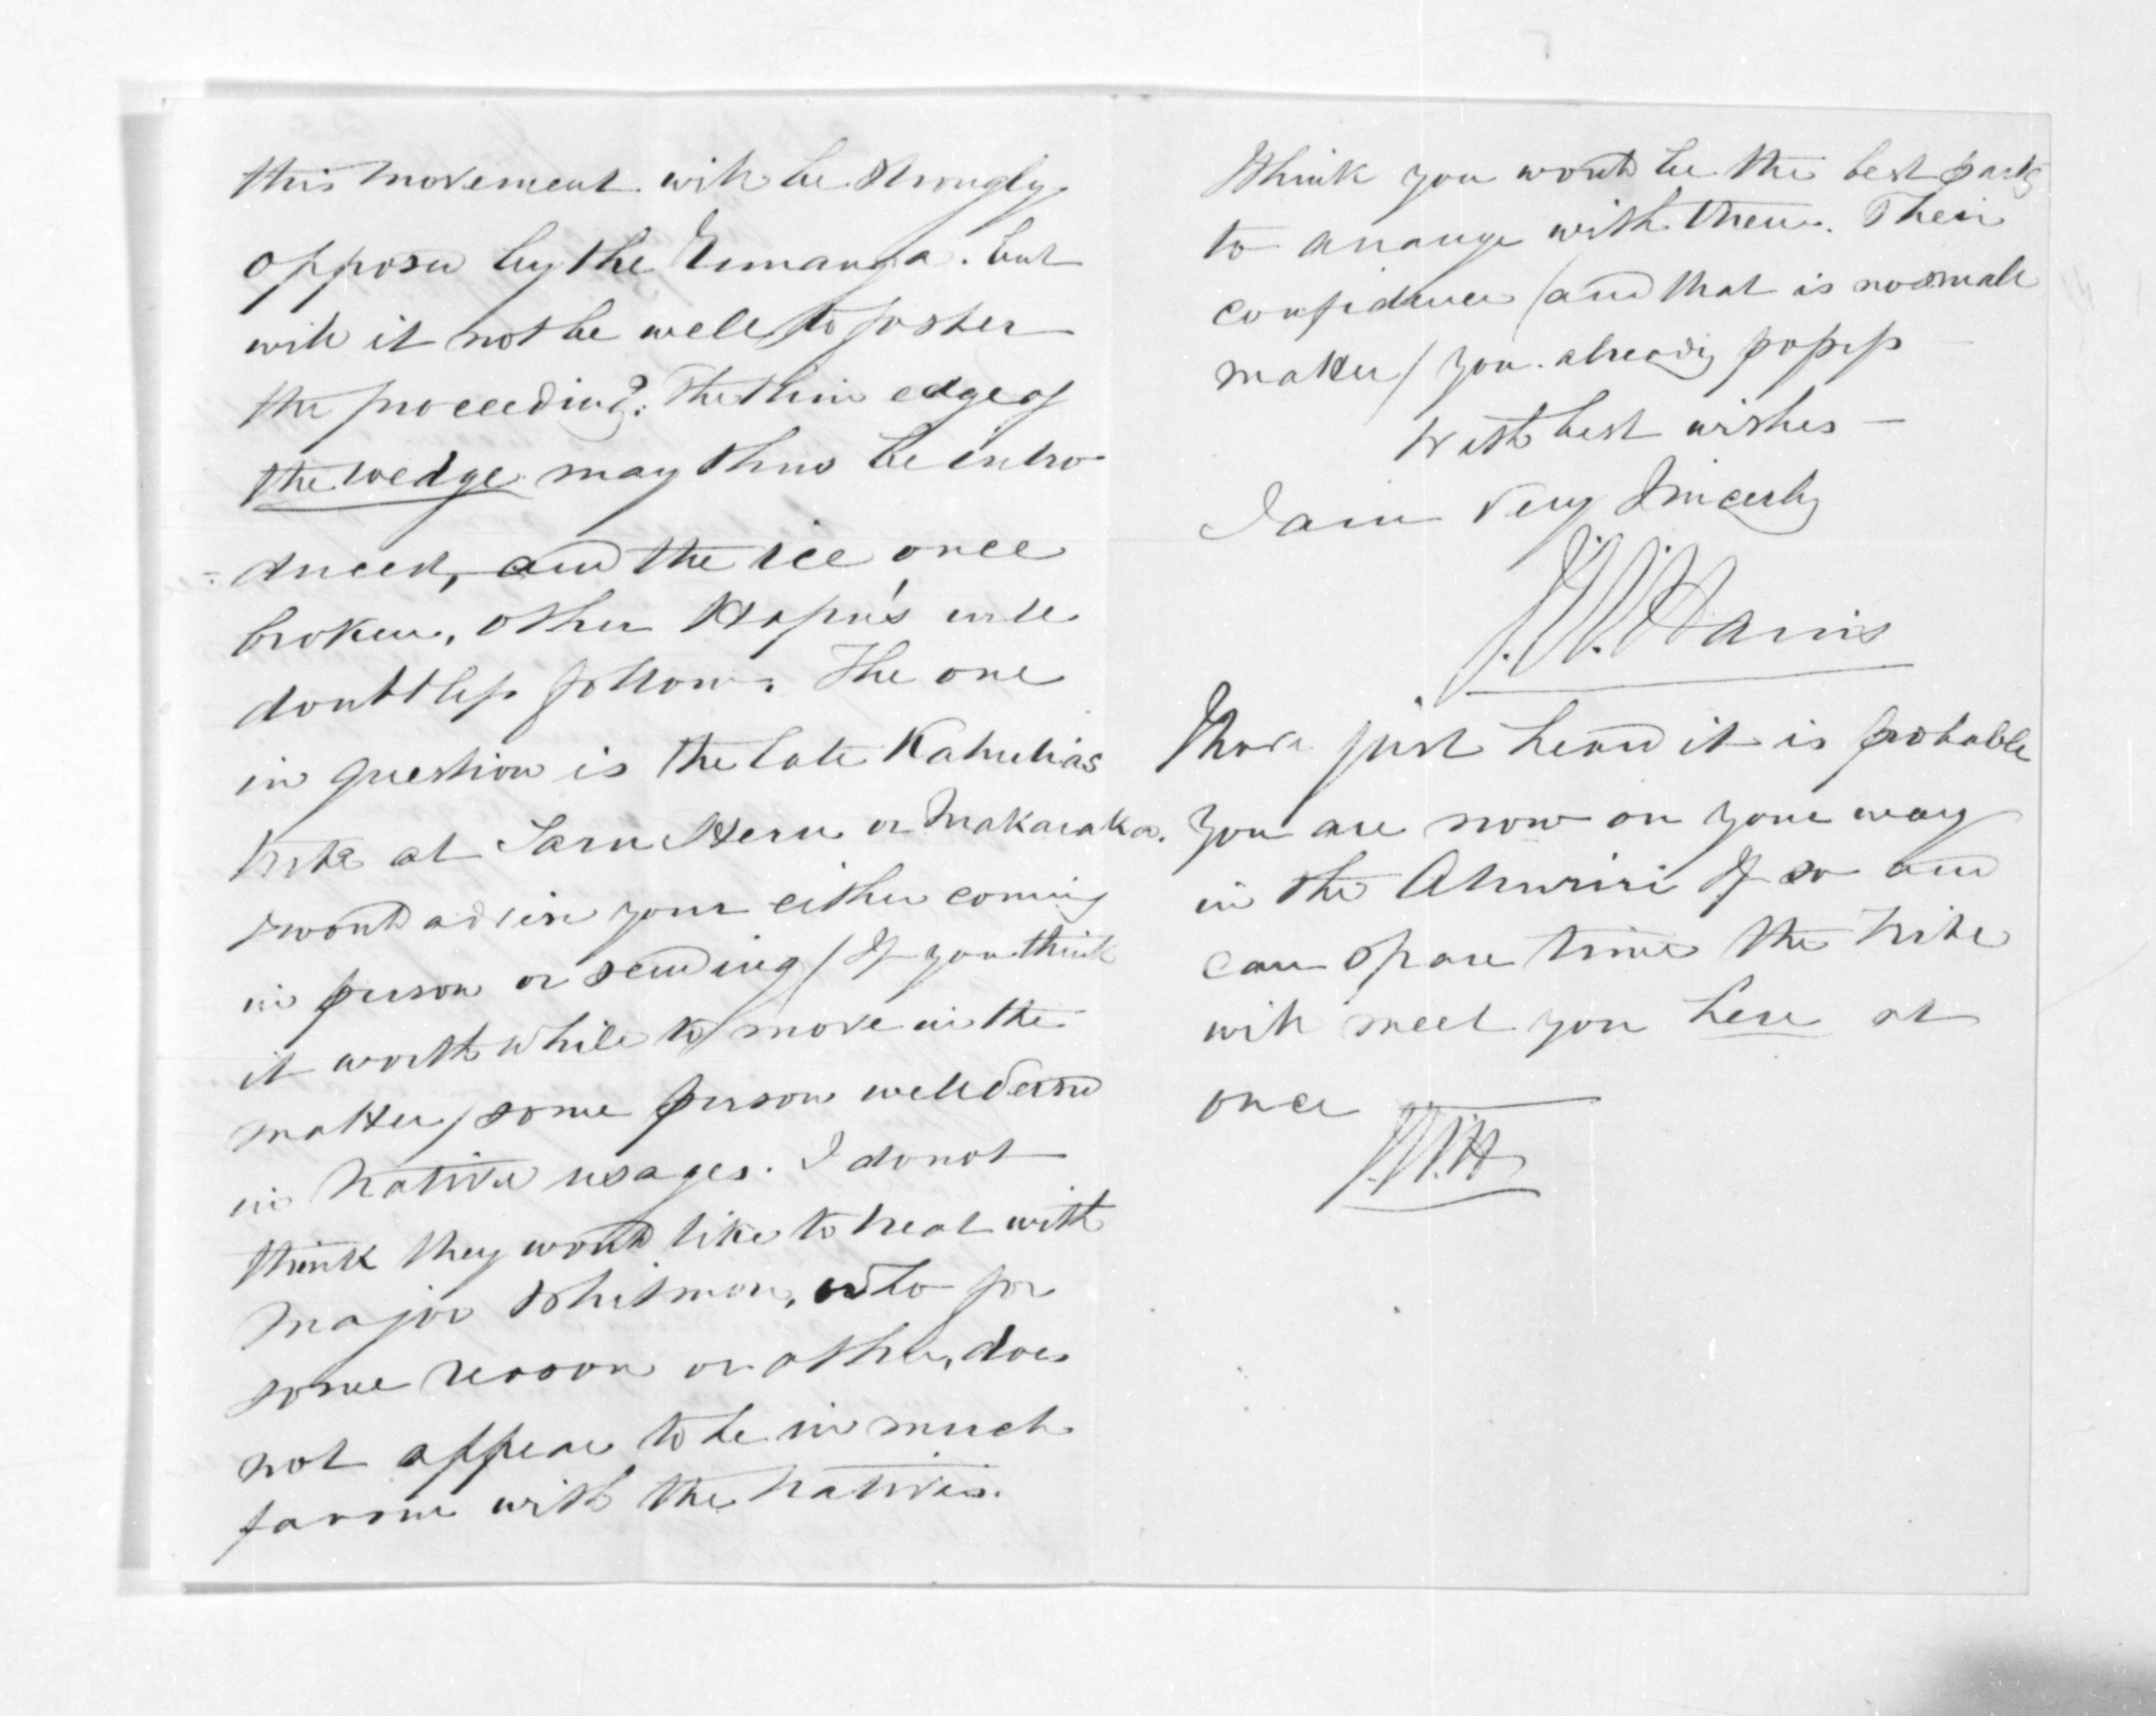 this movement will be strongly
opposed by the Runanga. but
will it not be well to foster
the proceeding? The thin edge of
the wedge may thus be intro
=duced, and the ice once
broken, other Hapu's will
doubtless follow. The one
in question is the late Kahutias
tribe at Taru Heru or Makaraka.
I would advise your either coming
in person or sending / If you think
it worth while to move in the
matter / some person well versed
in Native usages. I do not
think they would like to treat with
Major Whitmore, who for
some reason or other, does
not appear to be in much
favour with the Natives.
I think you would be the best party
to arrange with them. Their
confidence / and that is no small
matter / you already possess
With best wishes —
I am Very Sincerely
J.W. Harris
I have just heard it is probable
you are now on your way
in the Ahuriri If so and
can spare time the tribe
will meet you here at
once
J.W.H